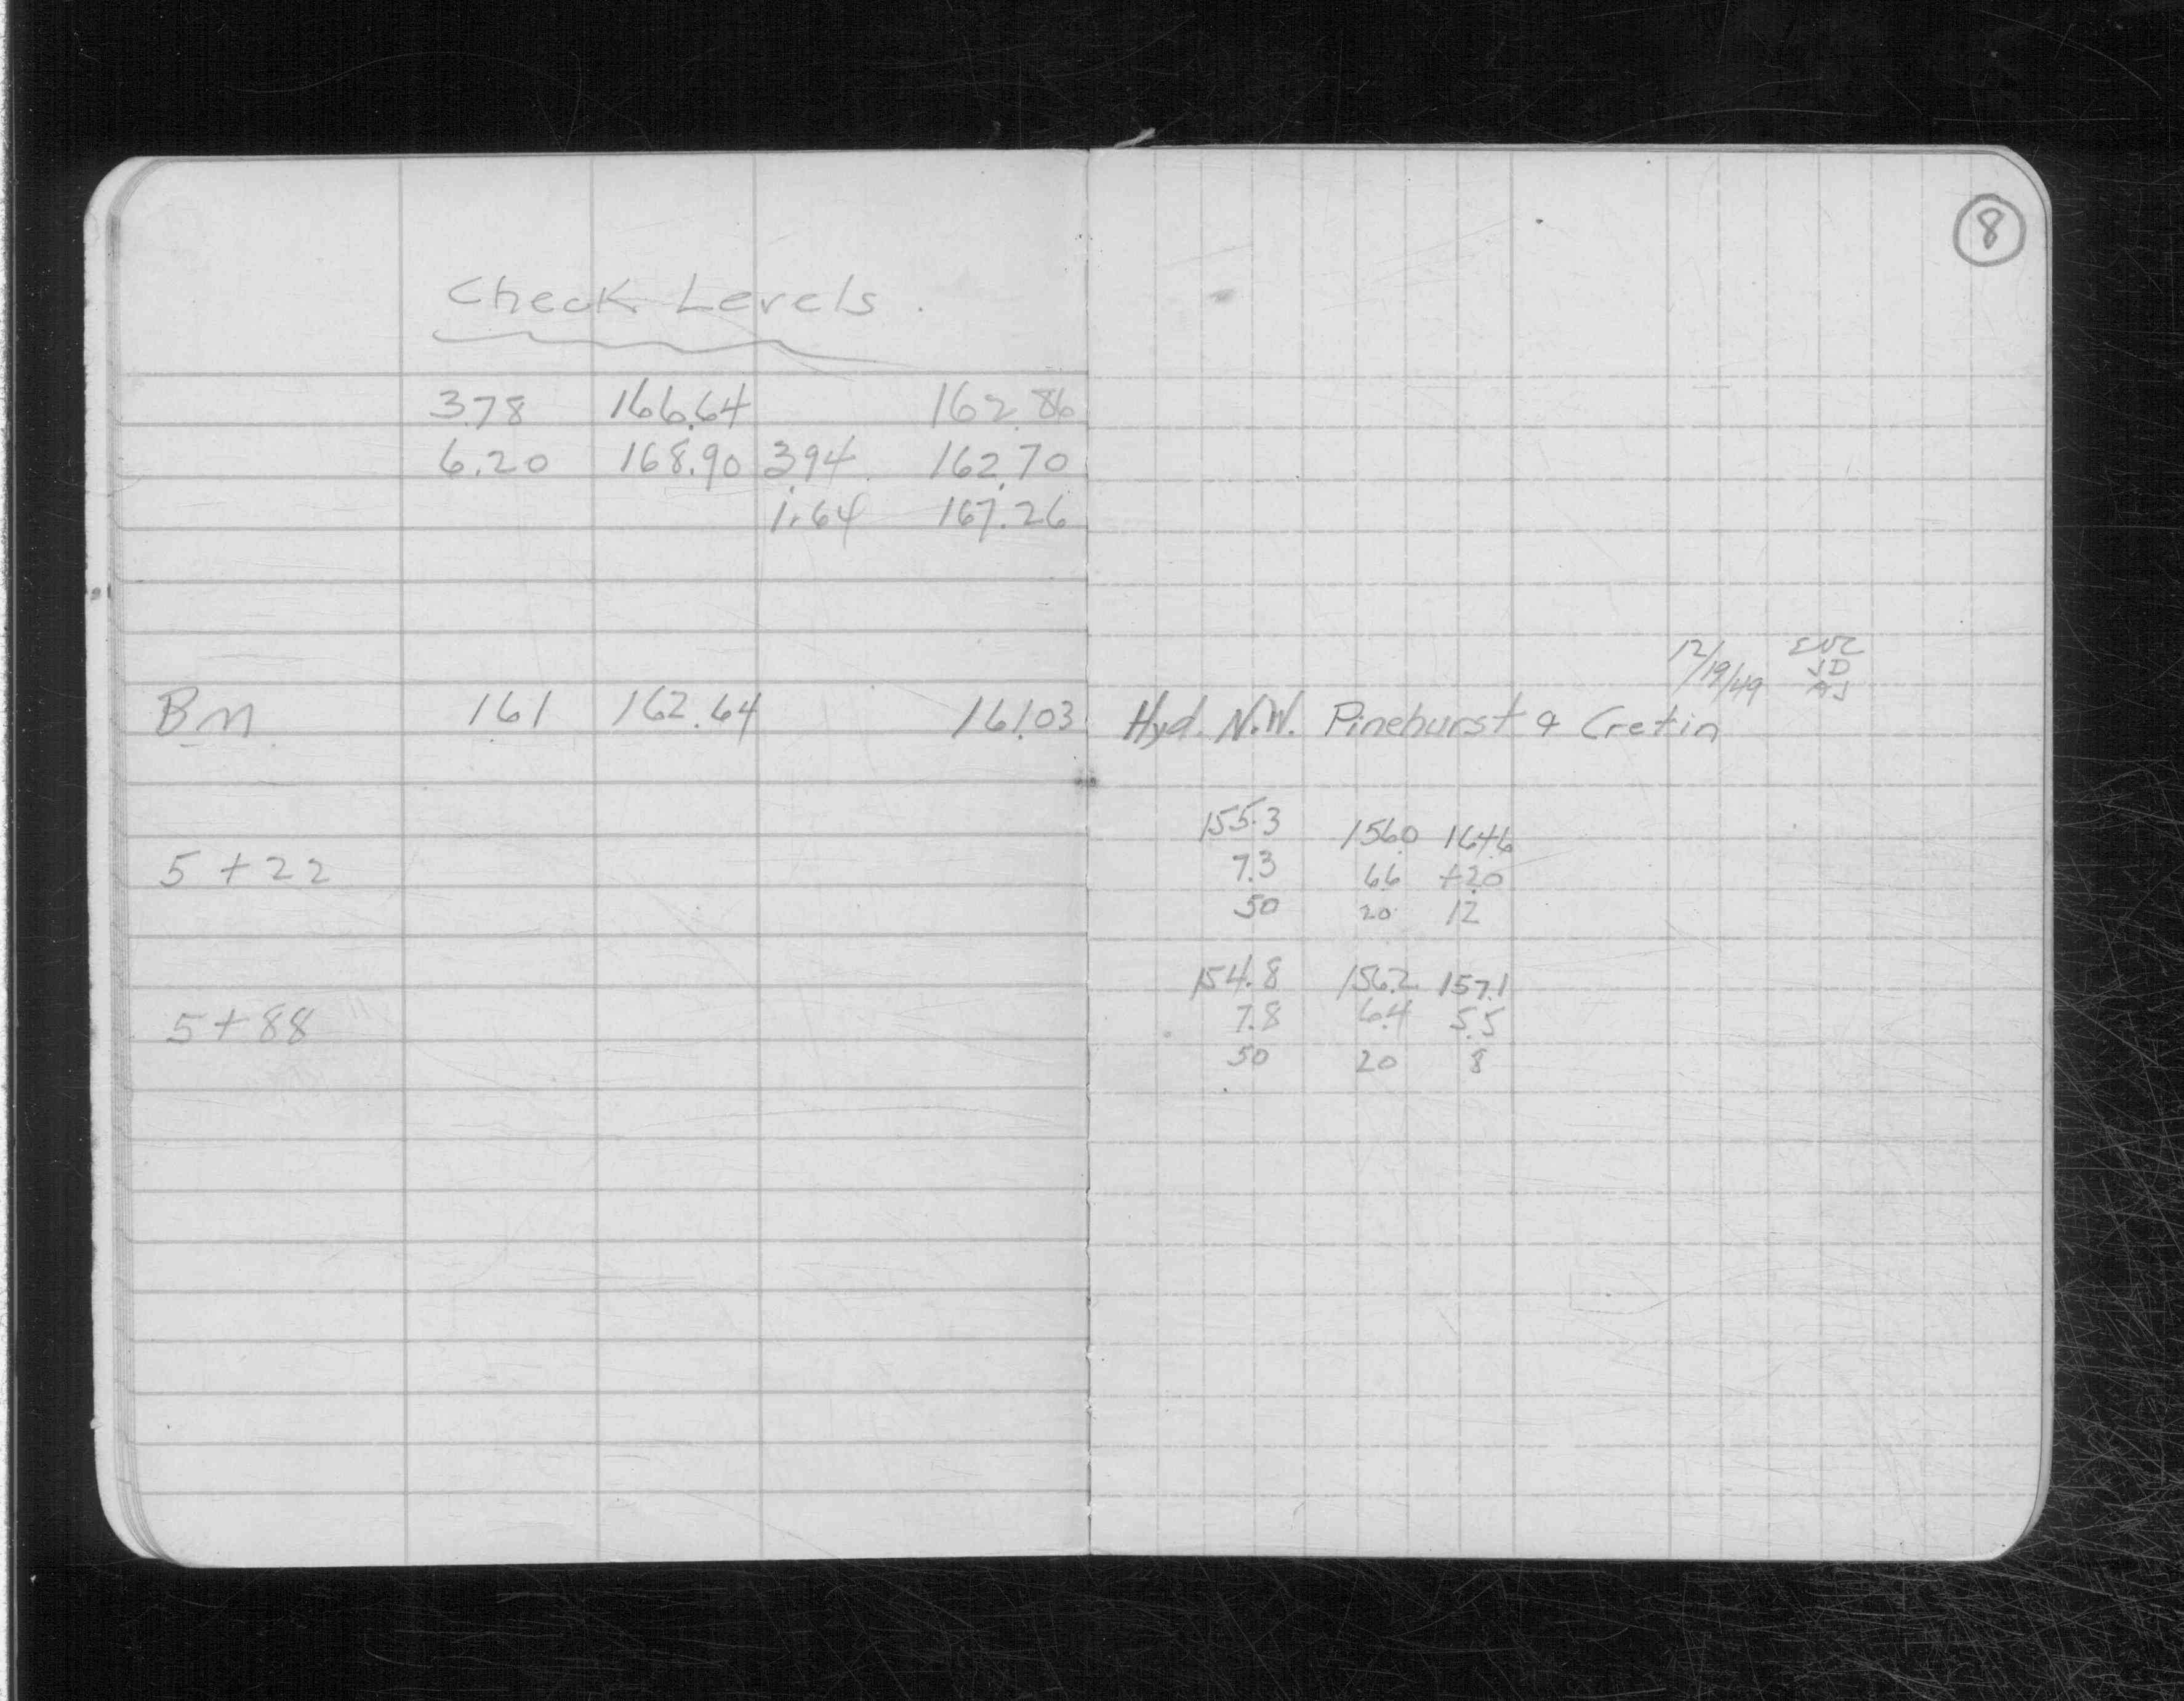 8
Check Levels.
3.78 166.64 162.86
6.20 168.90 3.94 162.70
1.64 167.26
12/19/49
JD
AJ
BM 1.61 162.64 161.03 Hyd. N.W. Pinehurst & Cretin
155.3 156.0 164.6
5+22 7.3 6.6 +2.0
50 20 12
154.8 156.2 157.1
5+88 7.8 6.4 5.5
50 20 8